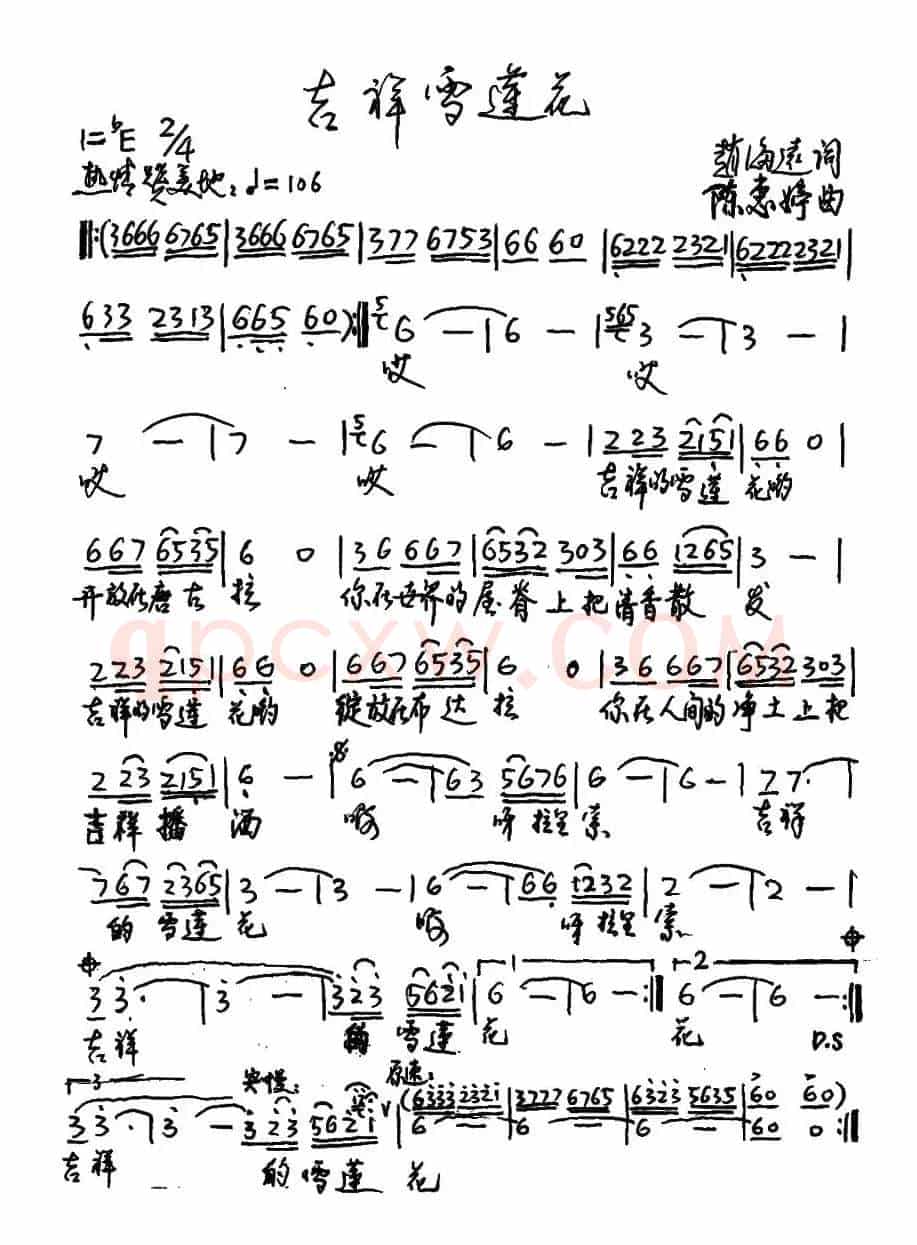 吉祥雪莲花
1=♭E 2/4
热情赞美地：♩=106
赵海远词
陈惠婷曲
‖:(3666 6765|3666 6765|377 6753|66 60|6222 2321|6222 2321|
633 2313|665 60):‖ 5 6 —|6 —|565 3 —|3 —|
哎 哎
7 —|7 —|5 6 —|6 —|223 2151|66 0|
哎 哎 吉祥的雪莲 花哟
667 6535|6 0|36 667|6532 303|66 1265|3 —|
开放在唐古 拉 你在世界的屋脊上把清香散 发
qpcxw.com
223 2151|66 0|667 6535|6 0|36 667|6532 303|
吉祥的雪莲 花哟 绽放在布达 拉 你在人间的净土上把
223 2151|6 —|6 —|63 5676|6 —|6 —|77·|
吉祥播 洒 呀拉里索 吉祥
767 2365|3 —|3 —|6 —|66 1232|2 —|2 —|
的雪莲 花 呀拉里 索
33·|3 —|323 5621|1 6 —|6 —:‖2 6 —|6 —:‖
吉祥 的 雪莲 花 花 D.S
3 突慢： 原速：
33·|3 —|323 5621 ∨(6333 2321|3777 6765|6323 5635|60 60)
6 6 6 60 0:‖
吉祥 的雪莲 花